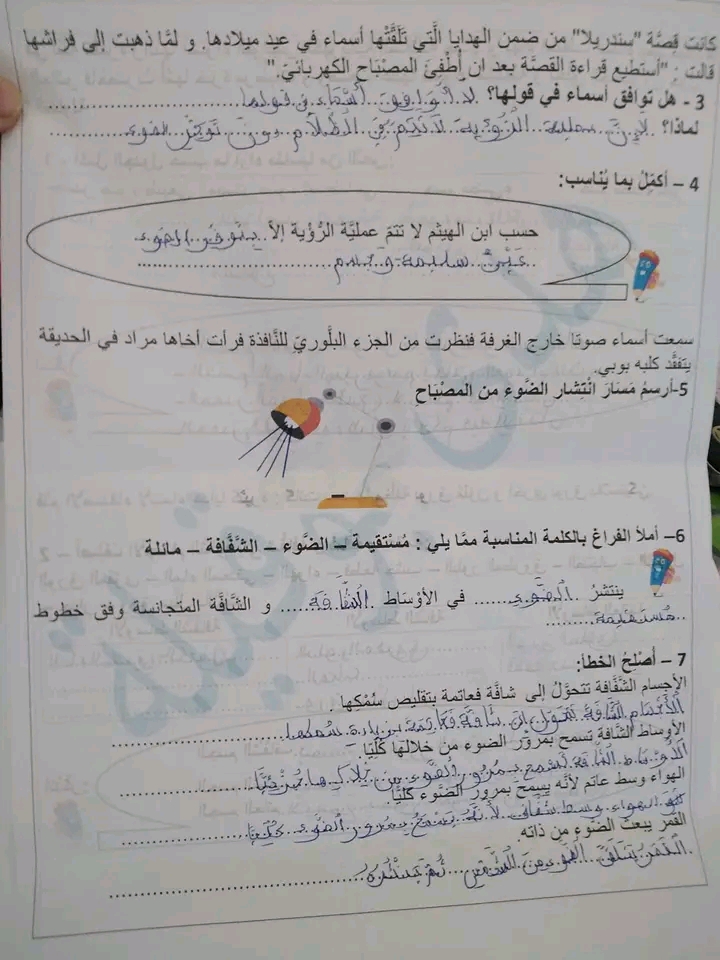 كانت قِصَّة "سندريلا" من ضمن الهدايا الَّتي تَلَقَّتْها أسماء في عيد ميلادها. و لمَّا ذهبت إلى فراشها
قالت : "أستطيع قراءة القصَّة بعد ان أُطْفِئَ المصْبَاح الكهربائيّ."
3 - هل توافق أسماء في قولها؟ لا أوافق أسماء في قولها
لماذا؟ لأنّ عملية الرّؤية لا تتم في الظّلام دون توفّر الضوء
4 – أكمِلُ بما يُناسب:
حسب ابن الهيثم لا تتمّ عمليَّة الرُّؤية إلاَّ بتوفر الضوء
عين سليمة و جسم
سمعت أسماء صوتا خارج الغرفة فنظرت من الجزء البلَّوريّ للنَّافذة فرأت أخاها مراد في الحديقة
يتفقَّد كلبه بوبي.
5-أرسمُ مَسَارَ انْتِشار الضَّوء من المصْبَاحِ
6– أملأ الفراغ بالكلمة المناسبة ممَّا يلي : مُسْتقيمة – الضَّوء – الشَّفَّافة – مائلة
ينتشرُ الضوء في الأوْسَاط الشّفّافة و الشَّافَّة المتجانسة وفق خطوط
مستقيمة
7 – أُصْلِحُ الخطأ:
الأجسام الشَّفَّافة تتحوَّل إلى شافَّة فعاتمة بتقليص سُمْكِها
الأجسام الشّفّافة تتحوّل إلى شافة فعاتمة بزيادة سمكها
الأوساط الشَّافَّة تسمح بمرور الضوء من خلالها كلّيّا.
الأوساط الشّافة تسمح بمرور الضّوء من خلالها جزئيّا
الهواء وسط عاتم لأنَّه يسمح بمرور الضَّوء كلّيَّا.
الهواء وسط شفاف لأنّه يسمح بمرور الضّوء كلّيّا
القمر يبعث الضَّوء من ذاته.
القمر يتلقّى الضوء من الشّمس ثم ينثره